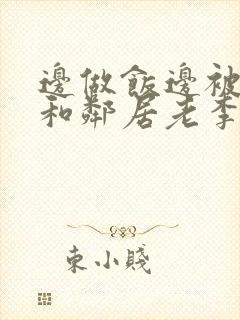 邊做飯邊被
和鄰居老李
東小賤